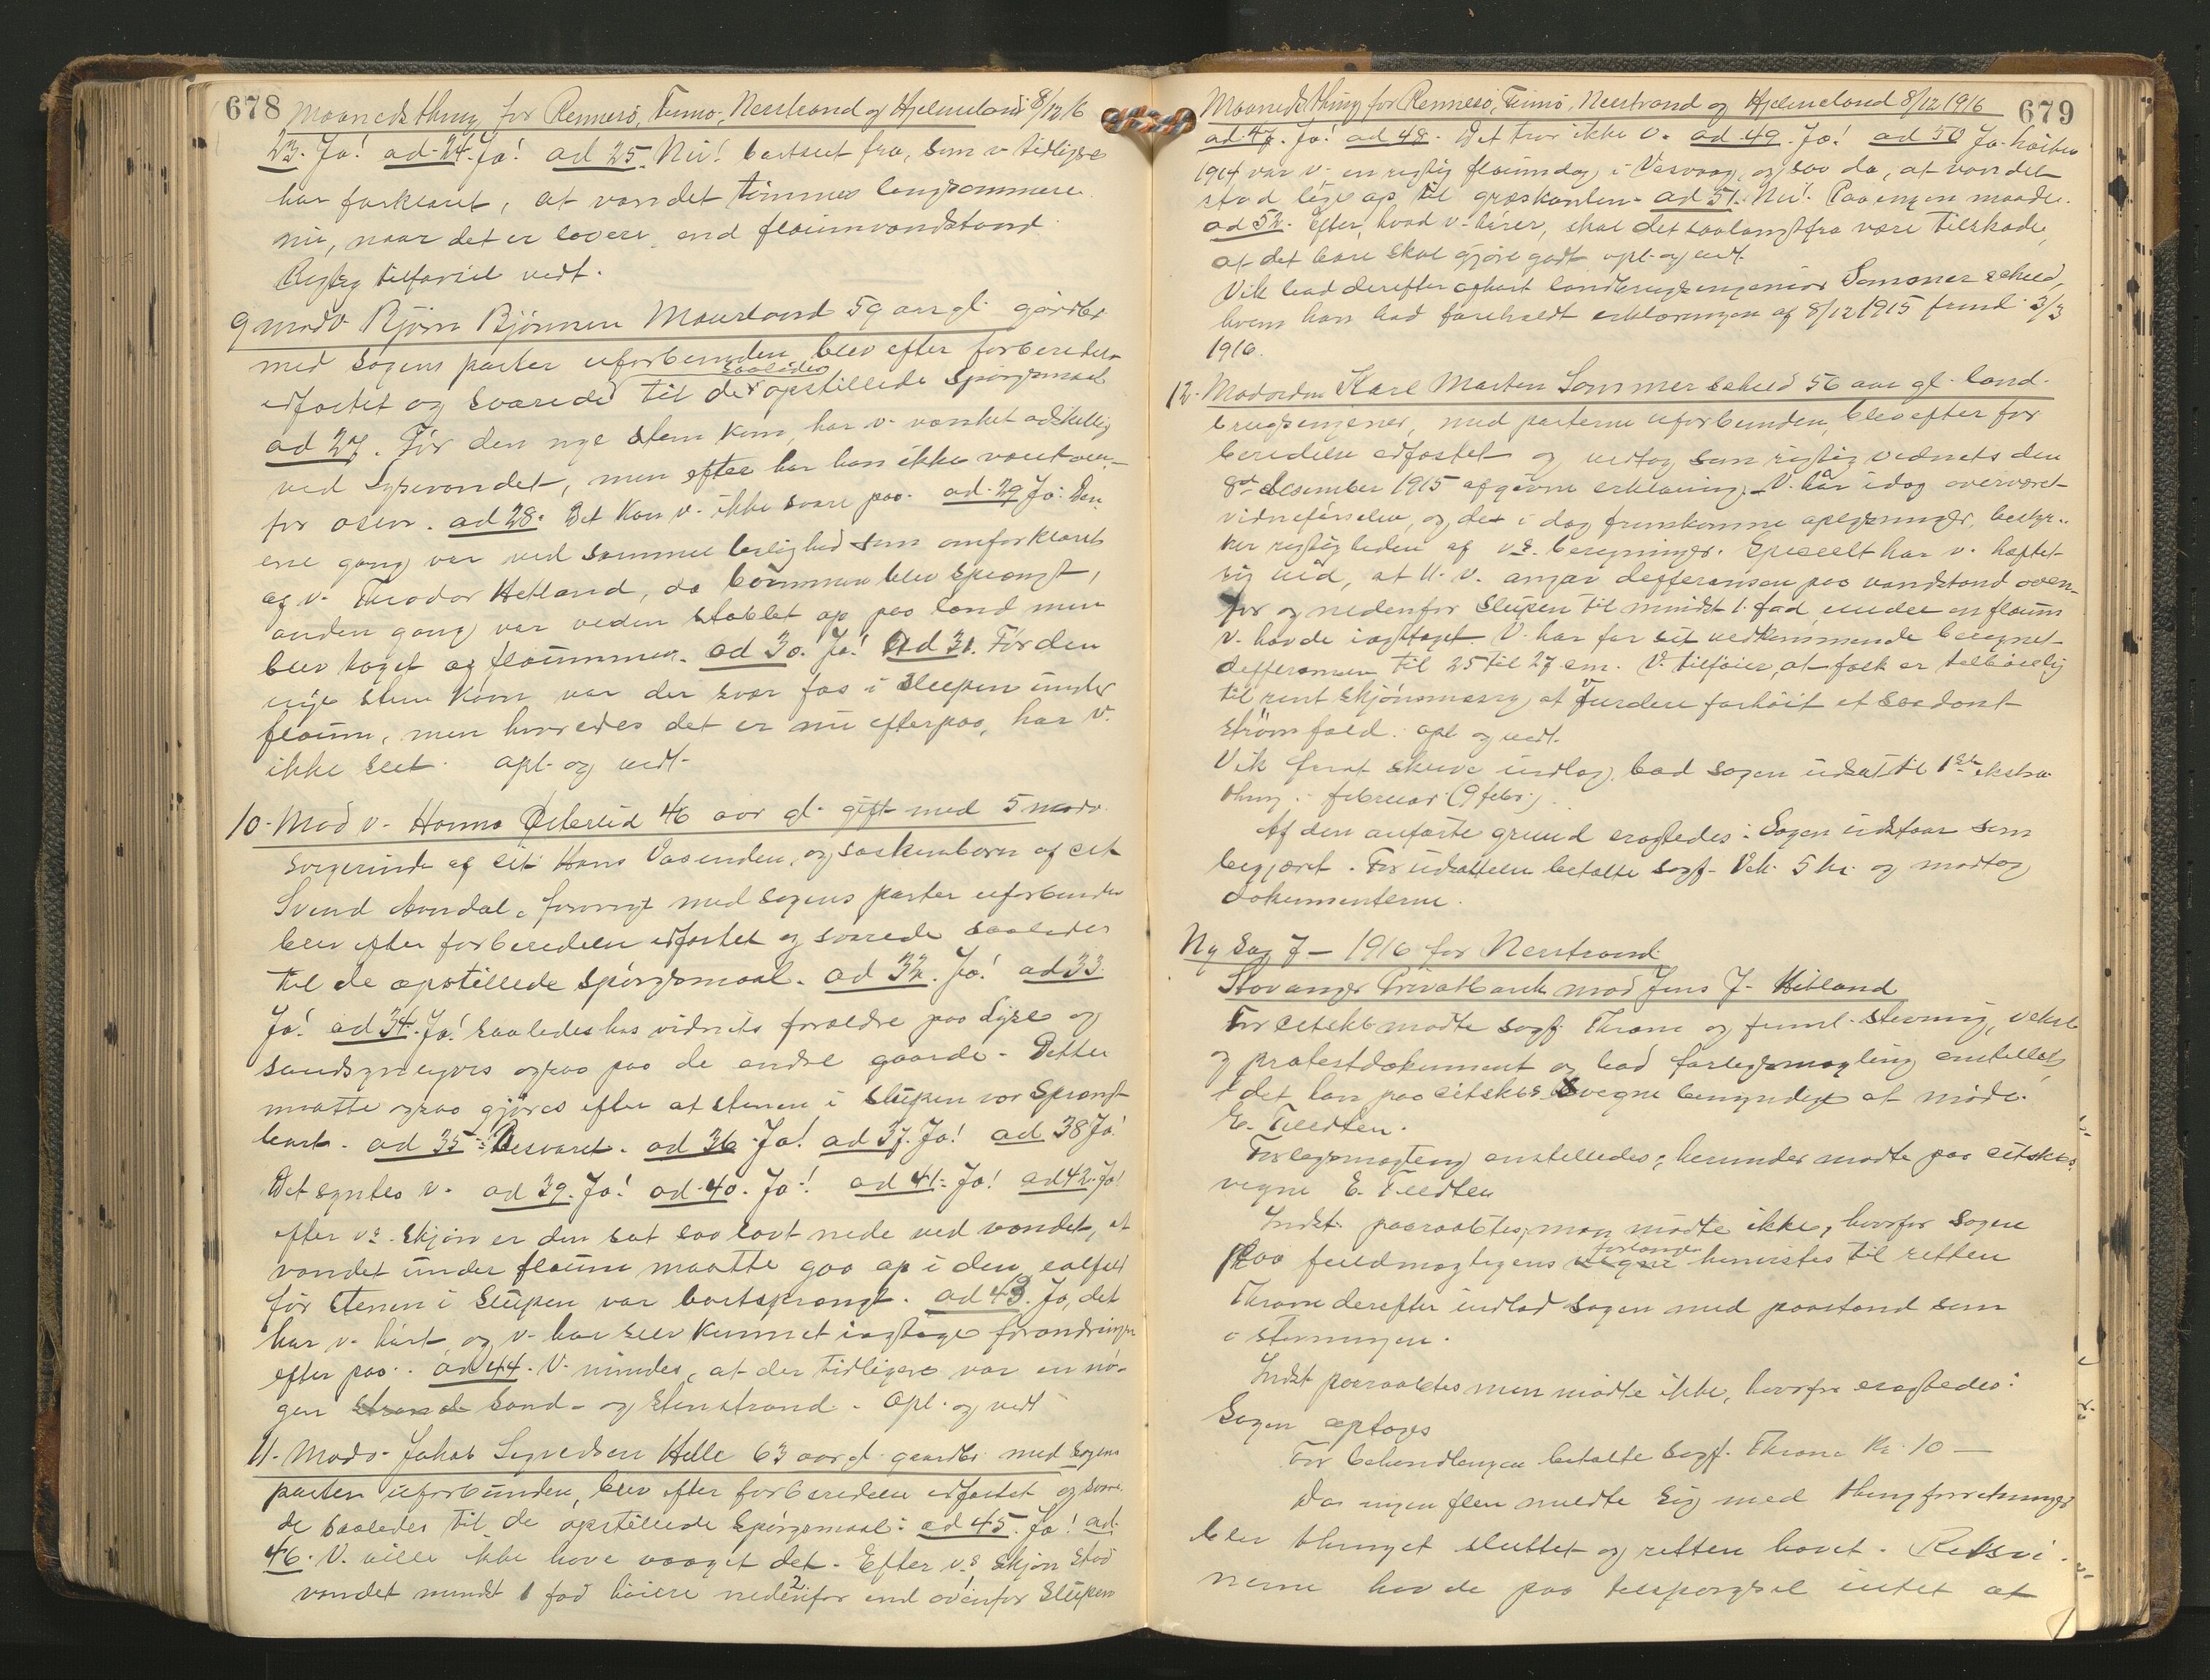 678 Maanedsthing for Rennesö, Finnö, Nerstrand og Hjelmeland 8/12 16
23. Ja! ad 24. Ja! ad 25. Nei! bortseet fra, som v. tidligere
har forklaret, at vandet timmes langsommere
nu, naar det er lavere end flaumvandstand.
Rigtig tilførsel vedt.
9 modv. Bjørn Bjønnsen Maurland 59 aar gl. gårdbr
med sagens parter uforbunden, blev efter forberedelse
edfæstet og svarede saaledes til de opstillede Spörgsmaal
ad 27. Før den nye sten kom, har v. vanket adskillig
ved Lysevandet, men efter har han ikke været oven-
for osen. ad 28. Det kan v. ikke svare paa. ad 29 Ja. Den
ene gang var ved samme leilighed som omforklaret
af v. Theodor Hetland, da bommen blev sprængt,
anden gang var veden stablet op paa land men
blev taget af flaummen. ad 30. Ja! Ad 31. Før den
nye sten kom var der svær fos i Sleipen under
flaum, men hvoredes det er nu efterpaa, har v.
ikke seet. opl. og vedt.
10. Mod v. Hanna Østerlid 46 aar gl. gift med 5 modv.
svigerinde af cit. Hans Vasenden, og søskenbarn af cit
Svend Aondal, forövrigt med sagens parter uforbunden
blev efter forberedelse edfæstet og svarede saaledes
til de opstillede spörgsmaal. ad 32. Ja! ad 33.
Ja! ad 34. Ja! saaledes hos vidnets forældre paa Lyse og
sandsynligvis ogsaa paa de andre gaarde. Dette
maatte ogsaa gjöres efter at stenen i Sleipen var sprængt
bort. ad 35: Besvaret. ad 36 Ja! ad 37. Ja! ad 38 Ja!
Det syntes v. ad 39. Ja! ad 40. Ja! ad 41. Ja! ad 42. Ja!
efter vs. skjön er den sat saa lavt nede ved vandet, at
vandet under flaum maatte gaa op i den, ialfald
för stenen i Sleipen var bortsprængt. ad 43. Ja, det
har v. hørt, og v. har selv kunnet iagttage forandringer
efter paa. ad 44. V. mindes, at der tidligere var en nö-
gen strand sand- og stenstrand. Opl. og vedt
11. Modv. Jakob Sigvedsen Helle 63 aar gl. gaardbr. med sagens
parter uforbunden, blev efter forberedelse edfæstet og svare-
de saaledes til de opstillede Spörgsmaal: ad 45. Ja! ad
46. V. ville ikke have vaaget det. Efter vs. skjön stod
vandet mindst 1 fod höiere nedenfor 2 end ovenfor Sleipen
Maanedsthing for Rennesö, Finnö, Nerstrand og Hjelmeland 8/12 1916 679
ad 47. Ja! ad 48. Det tror ikke v. ad 49. Ja! ad 50 Ja. høsten
1914 var v. en rigtig flaumdag i Vasvaag, og saa da, at vandet
stod lige op til græskanten. ad 51. Nei! Paa ingen maade.
ad 52. Efter, hvad v. hører, skal det saalangt fra være til skade,
at det bare skal gjöre godt opl. og vedt.
Vik bad derefter afhørt landbrugsingeniør Sommerschield,
hvem han bad foreholdt erklæringen af 8/12 1915 freml. 3/3
1916.
12. Modvidne Karl Marten Sommerschield 56 aar gl. land-
brugsingeniør, med parterne uforbunden, blev efter for
beredelse edfæstet og vedtog som rigtig vidnets den
8de desember 1915 afgivne erklæring. V. har idag overværet
vidneførselen, og de i dag fremkomne oplysninger, bestyr-
ker rigtigheden af vs. beregninger. Specielt har v. hæftet
sig ved, at 11. v. angav differansen paa vandstand oven-
for og nedenfor Sleipen til mindst 1 fod under en flaum
v. havde iagttaget. V. har for sit vedkommende beregnet
differansen til 25 til 27 cm. V. tilföier, at folk er tilböielig
til rent skjönsmæssig at vurdere forhöit et saadant
strömfald. opl. og vedt.
Vik freml. skrive indlæg, bad sagen udsat til 1ste ekstra-
thing i februar (9 febr.).
Af den anførte grund eragtedes: Sagen udstaar som
begjæret. For udsættelsen betalte sagf. Vik 5 kr. og modtog
dokumenterne.
Ny Sag 7 - 1916 for Nerstrand
Stavanger Privatbank mod Jens J. Hetland
For citskb. mødte sagf. Thrane og freml. stevning, veksel
og protestdokument og bad forligsmægling anstillet,
idet han paa citskbs. vegne bemyndiget at møde
E. Tveedten.
Forligsmægling anstilledes; herunder mødte paa citskbs.
vegne E. Tveedten
Indst. paaraabtes, men mødte ikke, hvorfor sagen
paa fuldmægtigens vegne forlangende henvistes til retten
Thrane derefter indlod sagen med paastand som
i stevningen.
Indst. paaraabtes men mødte ikke, hvorfor eragtedes:
Sagen optages
For behandlingen betalte sagf. Thrane Kr. 10 —
Da ingen flere meldte sig med thingforretninger
blev thinget sluttet og retten hævet. Retsvi-
nerne havde paa tilspørgsel intet at